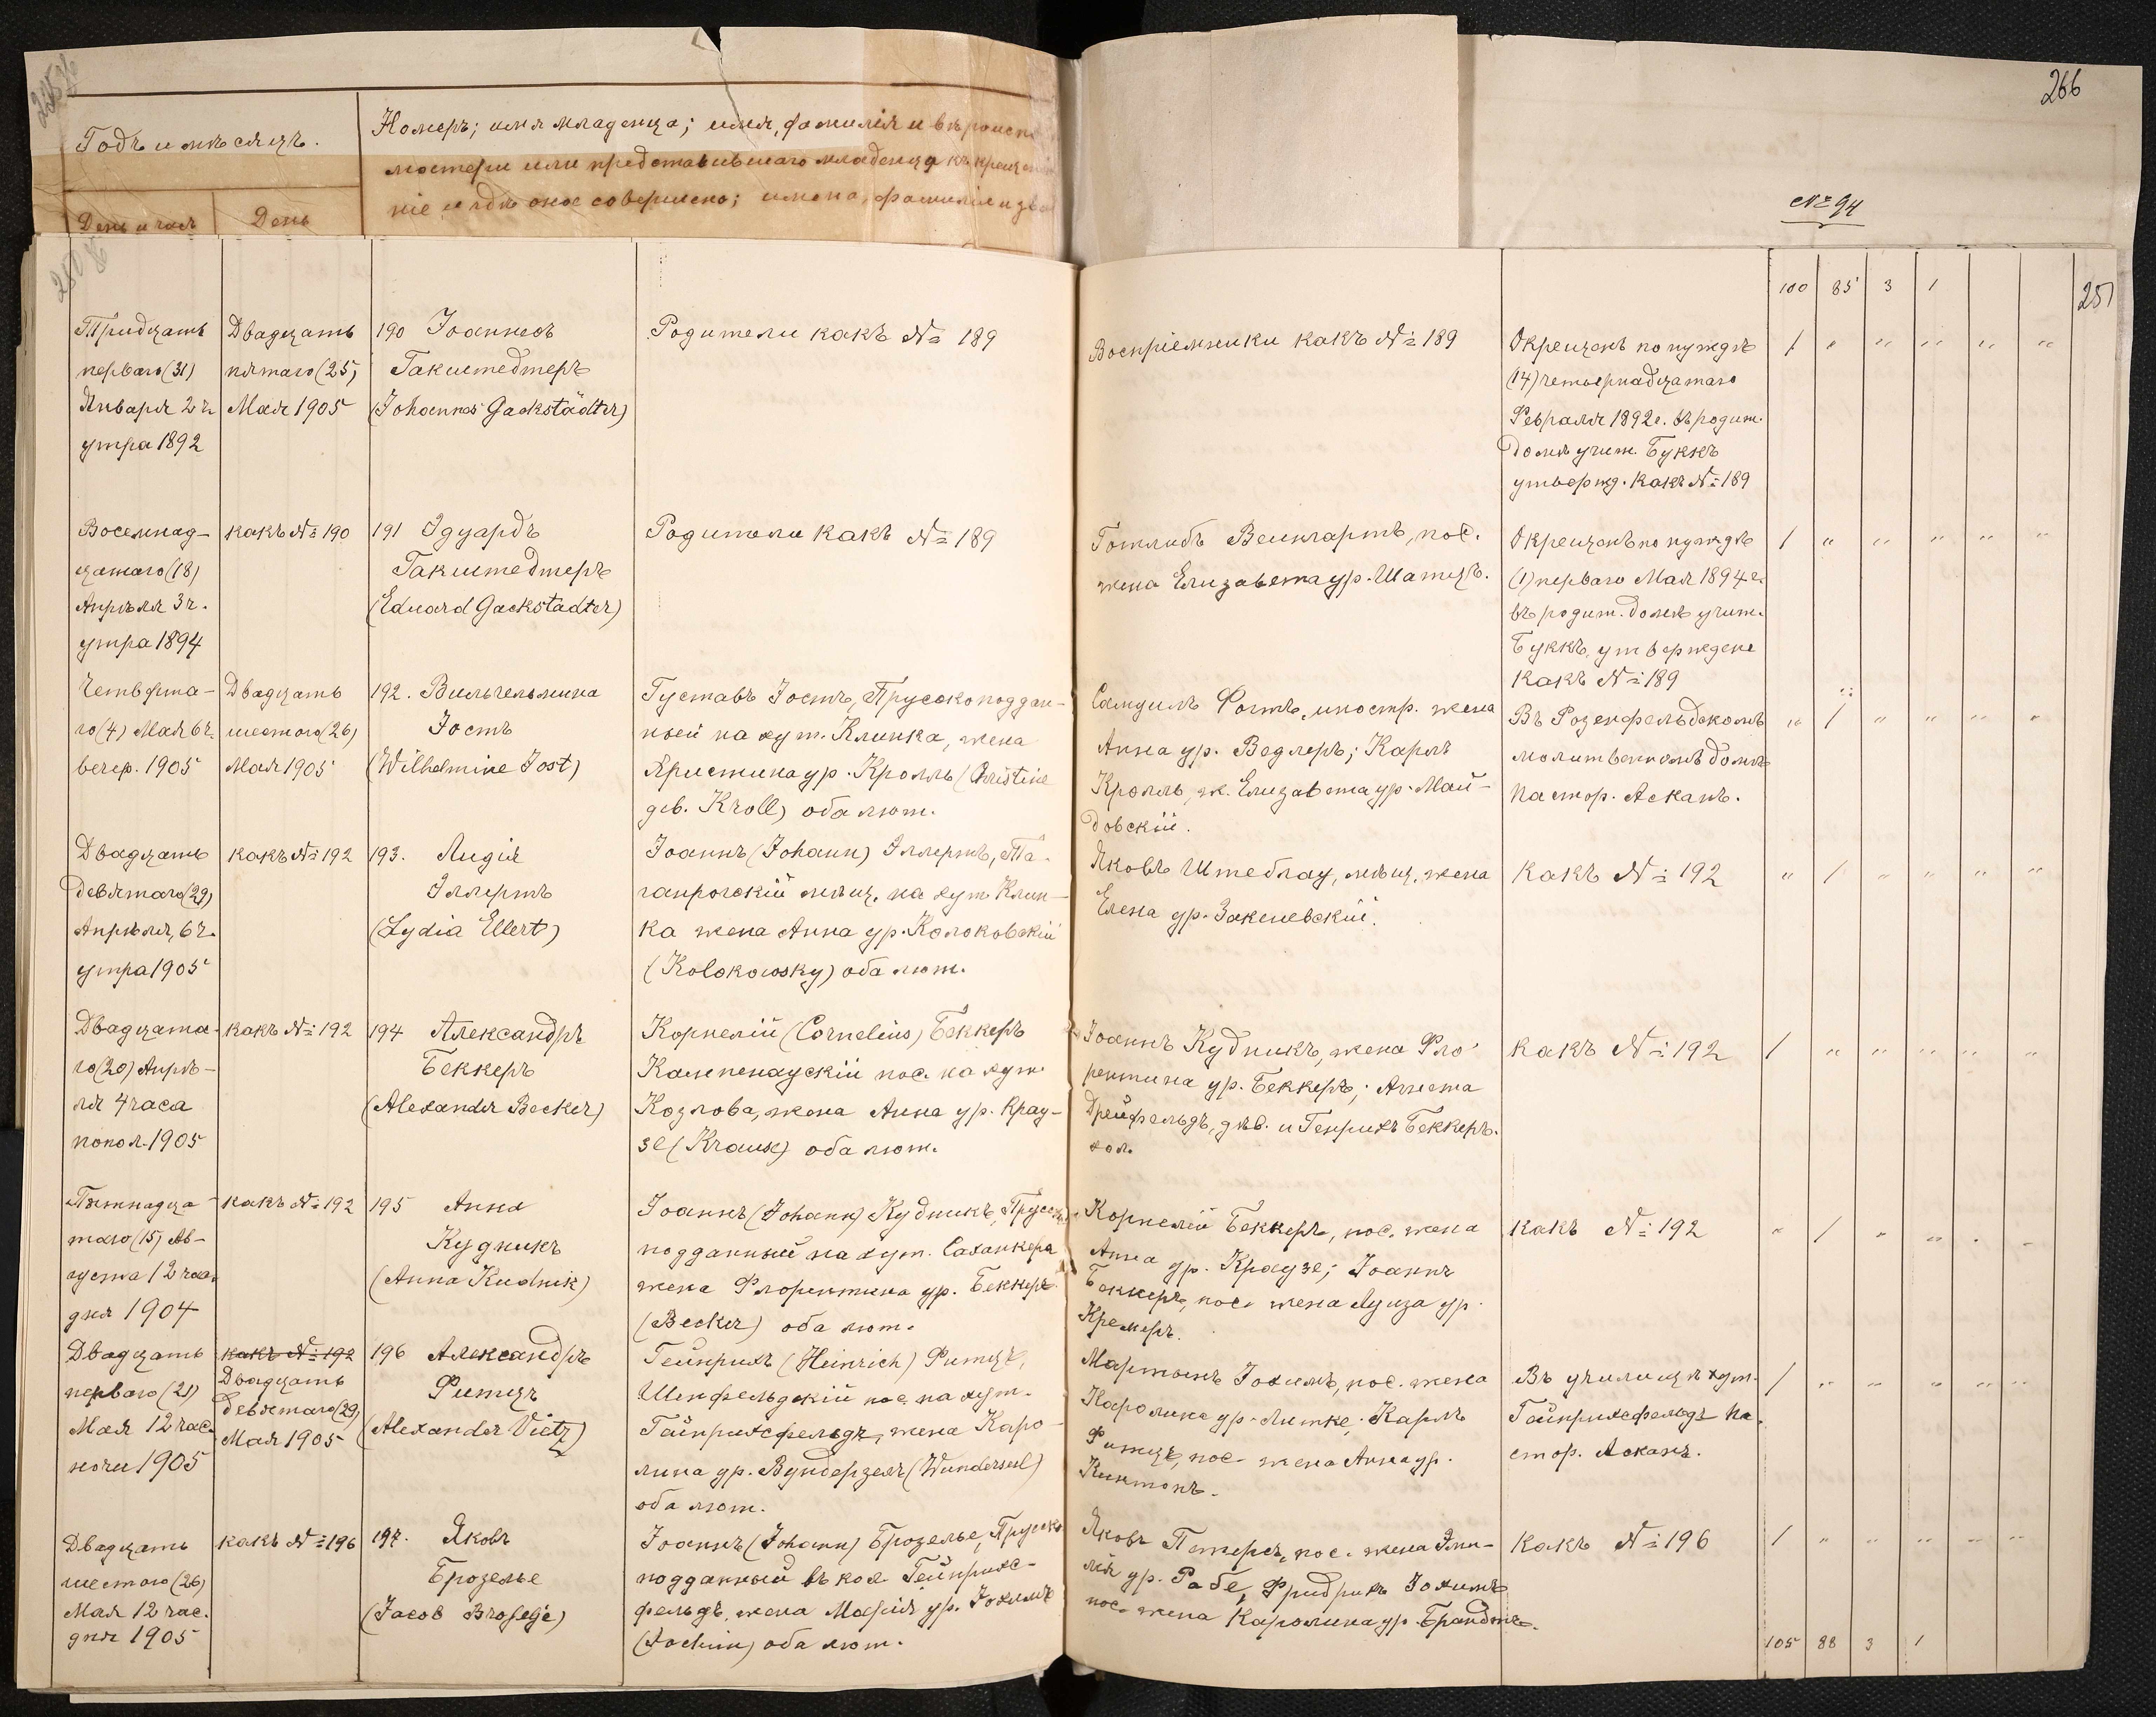 266
№ 94
Годъ и мѣсяцъ.
День и часъ
День
Номеръ; имя младенца; имя, фамилія и вѣроисп
матери или представившаго младенца къ крещен
ніе и гдѣ оное совершено; имена, фамиліи и зва
100 85 3 1
251
Тридцать
перваго (31)
Января 2 ч.
утра 1892
Двадцать
пятаго (25)
Мая 1905
190 Іоаннесъ
Гакштедтеръ
(Johannes Gackstädter)
Родители какъ № 189
Воспріемники какъ № 189
Окрещенъ по нуждѣ
(14) четырнадцатаго
Февраля 1892 г. въ родит.
домѣ учит. Буккъ
утвержд. какъ № 189
1 " " " " "
Восемнад-
цатаго (18)
Апрѣля 3 ч.
утра 1894
какъ № 190
191 Эдуардъ
Гакштедтеръ
(Eduard Gackstädter)
Родители какъ № 189
Готлибъ Веингартъ, пос.
жена Елизавета ур. Шатцъ.
Окрещенъ по нуждѣ
(1) перваго Мая 1894 г.
въ родит. домѣ учит.
Буккъ, утвержденъ
какъ № 189
1 " " " " "
Четверта-
го (4) Мая 6 ч.
вечер. 1905
Двадцать
шестого (26)
Мая 1905
192. Вильгельмина
Іостъ
(Wilhelmine Jost)
Густавъ Іостъ, Прусскоподдан-
ный на хут. Клинка, жена
Христина ур. Кролль (Christine
geb. Kroll) оба лют.
Самуилъ Фогтъ, иностр. жена
Анна ур. Ведлеръ; Карлъ
Кролль, ж. Елизавета ур. Май-
довскій.
Въ Розенфельдскомъ
молитвенномъ домѣ
Пастор. Асканъ.
" 1 " " " "
Двадцать
девятаго (29)
Апрѣля, 6 ч.
утра 1905
какъ № 192
193. Лидія
Эллертъ
(Lydia Ellert)
Іоаннъ (Johann) Эллертъ, Та-
ганрогскій мѣщ. на хут. Клин-
ка жена Анна ур. Колоковскій
(Kolokowsky) оба лют.
Яковъ Штеблау, мѣщ. жена
Елена ур. Закшевскій.
какъ № 192
" 1 " " " "
Двадцата-
го (20) Апрѣ-
ля 4 часа
попол. 1905
какъ № 192
194 Александръ
Беккеръ
(Alexander Becker)
Корнелій (Cornelius) Беккеръ
Кампенаускій пос. на хут.
Козлова, жена Анна ур. Крау-
зе (Krause) оба лют.
Іоаннъ Кудникъ, жена Фло-
рентина ур. Беккеръ; Августа
Дрейфельдъ, дѣв. и Генрихъ Беккеръ.
хол.
какъ № 192
1 " " " " "
Пятнадца-
таго (15) Ав-
густа 12 час.
дня 1904
какъ № 192
195 Анна
Кудникъ
(Anna Kudnik)
Іоаннъ (Johann) Кудникъ, Прусск.
подданный на хут. Саханкера
жена Флорентина ур. Беккеръ
(Becker) оба лют.
Корнелій Беккеръ, пос. жена
Анна ур. Краузе; Іоаннъ
Беккеръ, пос. жена Луиза ур.
Кремеръ.
какъ № 192
" 1 " " " "
Двадцать
перваго (21)
Мая 12 час.
ночи 1905
какъ № 192
Двадцать
девятаго (29)
Мая 1905
196 Александръ
Фитцъ
(Alexander Vietz)
Гейнрихъ (Heinrich) Фитцъ,
Шенфельдскій пос. на хут.
Гайнрихсфельдъ, жена Каро-
лина ур. Вундерзель (Wunderseel)
оба лют.
Мартынъ Іохимъ, пос. жена
Каролина ур. Литке; Карлъ
Фитцъ, пос. жена Анна ур.
Кинтопъ.
Въ училищѣ хут.
Гайнрихсфельдъ Па-
стор. Асканъ.
1 " " " " "
Двадцать
шестого (26)
Мая 12 час.
дня 1905
какъ № 196
197. Яковъ
Брозелье
(Jacob Brosegé)
Іоаннъ (Johann) Брозелье, Прусско
подданный въ кол. Гейнрихс-
фельдъ, жена Марія ур. Іохимъ
(Jochim) оба лют.
Яковъ Петерсъ, пос. жена Эми-
лія ур. Рабе, Фридрихъ Іохимъ
пос. жена Каролина ур. Брандтъ.
какъ № 196
1 " " " " "
105 88 3 1